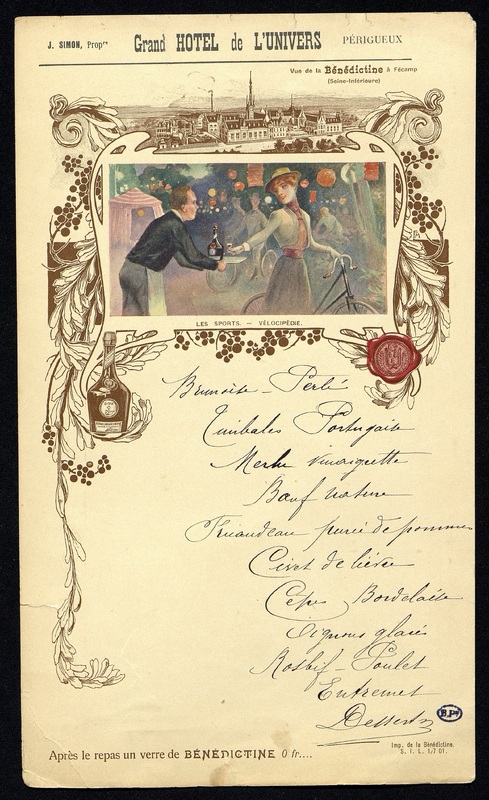 J. SIMON, Propre
Grand HOTEL de L'UNIVERS
PÉRIGUEUX
Vue de la Bénédictine à Fécamp
(Seine-Inférieure)
LES SPORTS. — VÉLOCIPÉDIE.
Brunoise - Perlé
Timbales Portugaise
Merlu vinaigrette
Bœuf nature
Fricandeau purée de pommes
Civet de lièvre
Cèpes Bordelaise
Oignons glacés
Rosbif - Poulet
Entremet
Desserts
B.Px
Après le repas un verre de BÉNÉDICTINE 0 fr....
Imp. de la Bénédictine.
S. I. L. 1/7 01.